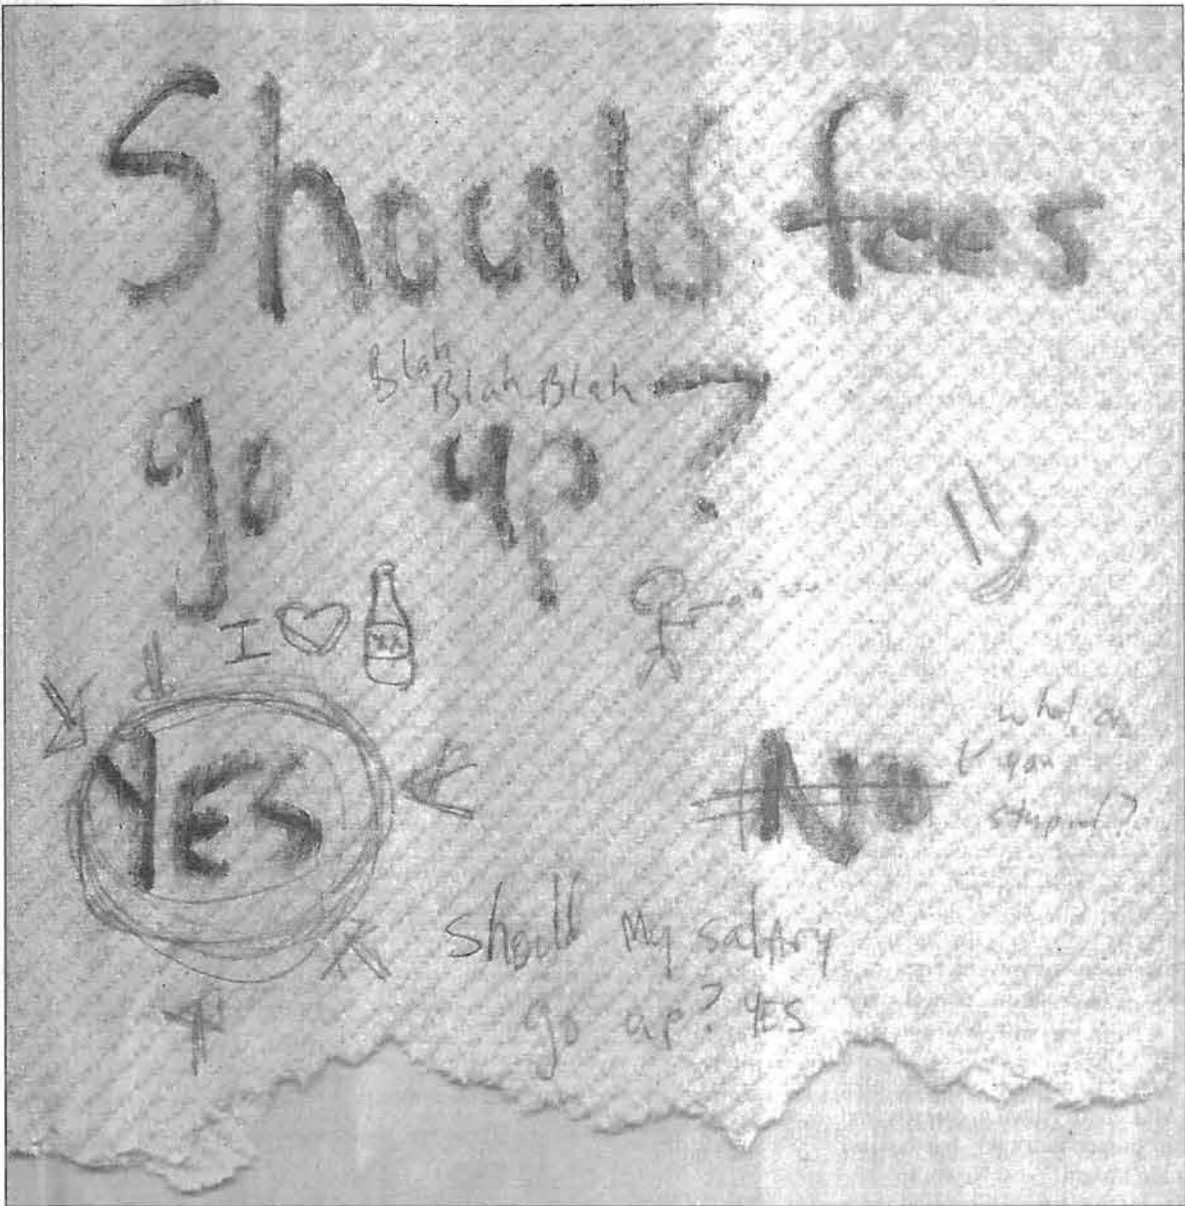 Should fees
Blah
Blah Blah
go up?
I
YES
NO
what are
you
stupid?
Should My salary
go up? YES